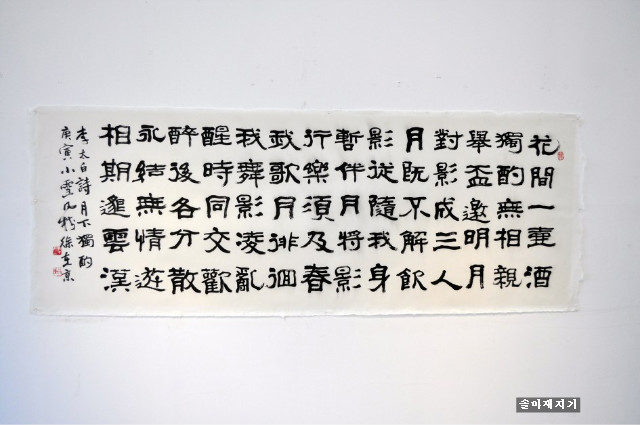 花間一壺酒
獨酌無相親
舉盃邀明月
對影成三人
月既不解飮
影徒隨我身
暫伴月將影
行樂須及春
我歌月徘徊
我舞影凌亂
醒時同交歡
醉後各分散
永結無情遊
相期邈雲漢
李太白詩月下獨酌
庚寅小雪
솔마재지기